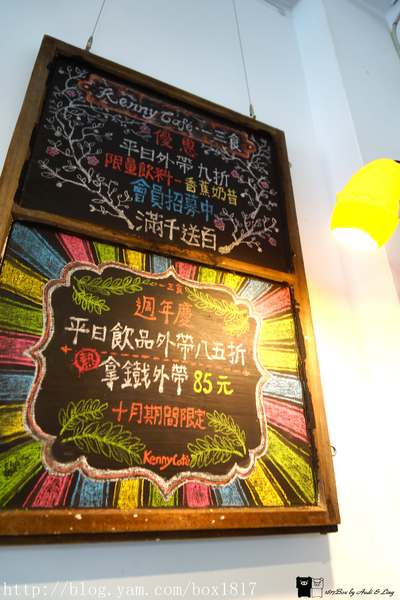 Kenny Café 一三食
優惠
平日外帶九折
限量飲料-香蕉奶昔
會員招募中
滿千送百
一三食
週年慶
平日飲品外帶八五折
熱拿鐵外帶 85元
十月期間限定
Kenny Café
1817Box by Andi & Ling
http://blog.yam.com/box1817